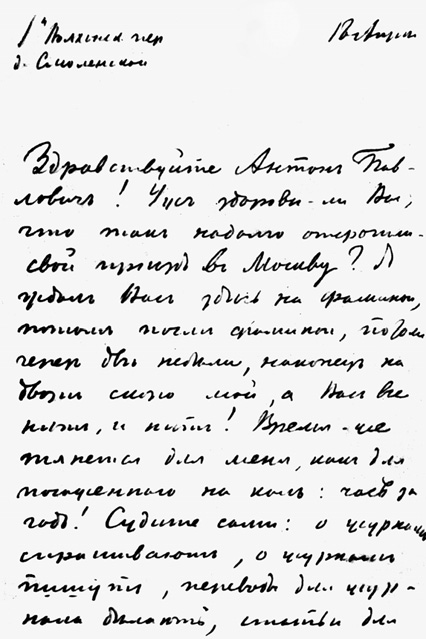 1й Полянск. пер
д. Смоленской
18 Апреля
Здравствуйте Антонъ Пав-
ловичъ! Ужъ здоровы-ли Вы,
что такъ надолго отсрочили
свой пріѣздъ въ Москву? Я
ждалъ Васъ здѣсь на фоминой,
потомъ послѣ фоминой, потомъ
черезъ двѣ недѣли, наконецъ на
дворѣ скоро май, а Васъ все
нѣтъ, и нѣтъ! Время-же
тянется для меня, какъ для
посаженнаго на колъ: часъ за
годъ! Судите сами: о журналѣ
спрашиваютъ, о журналѣ
пишутъ, переводы для жур-
нала дѣлаютъ, статьи для